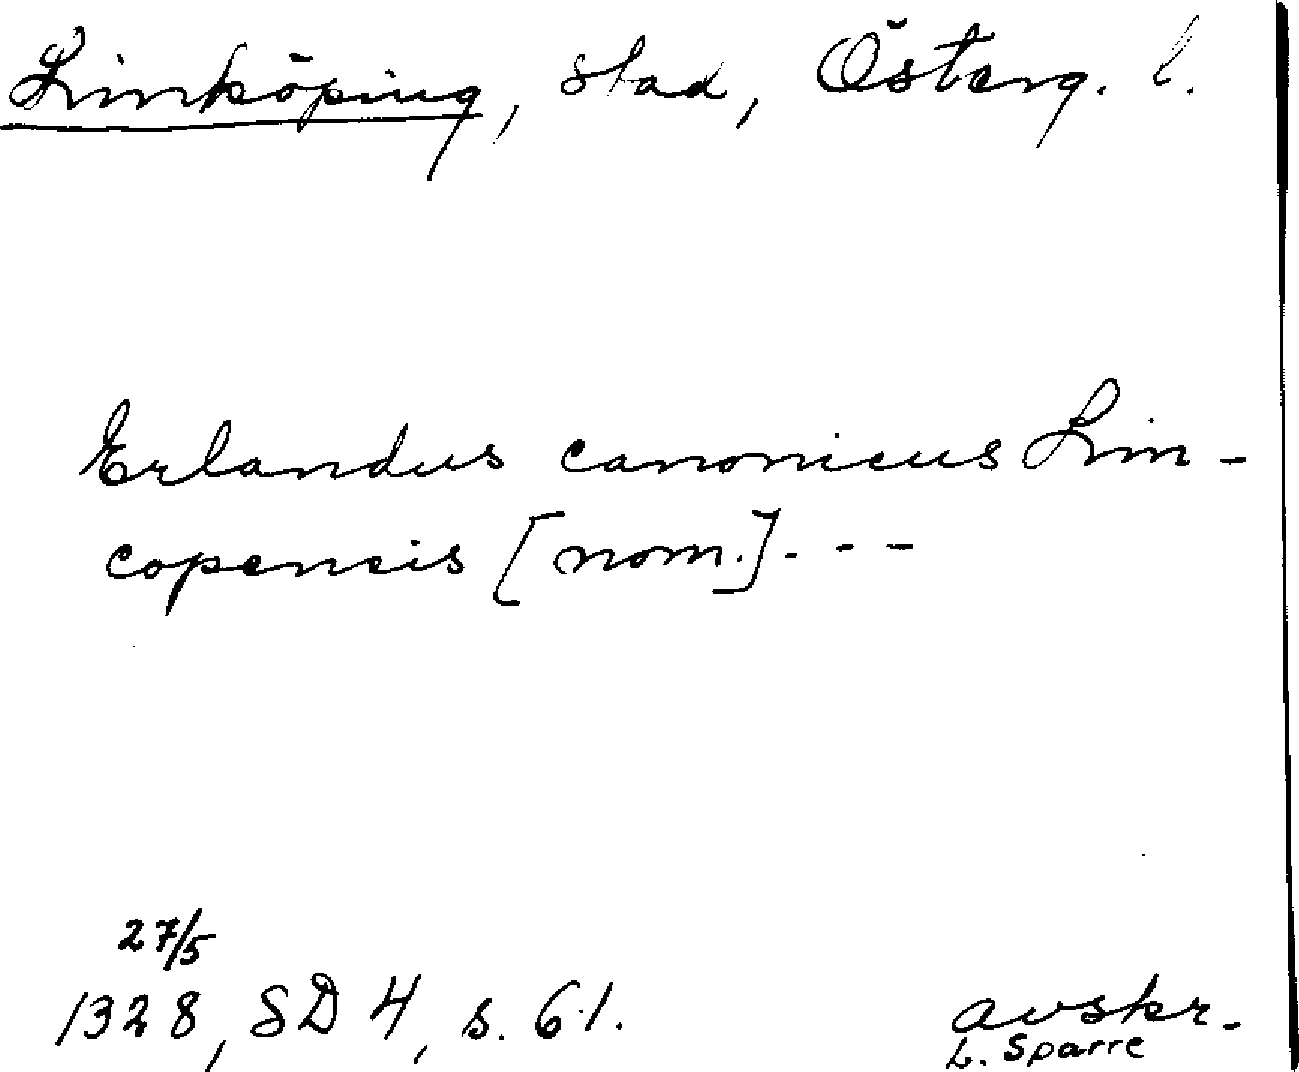 Linköping, stad, Österg. l.
Erlandus canonicus Lin-
copencis [nom.]. - - -
27/5
1328, SD 4, s. 61.
avskr.
L. Sparre